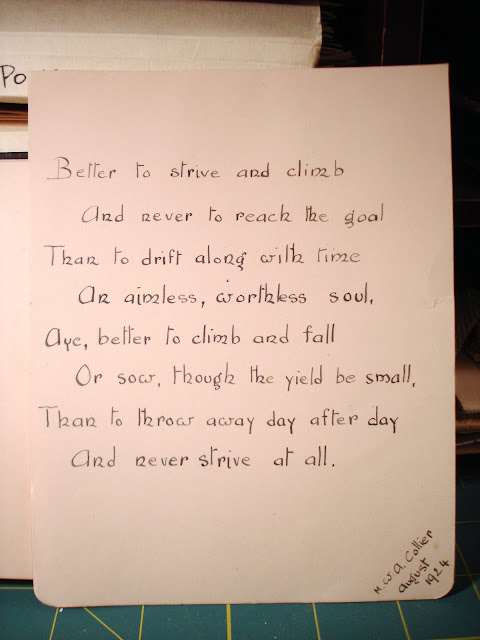 Po
Better to strive and climb
And never to reach the goal
Than to drift along with time
An aimless, worthless soul.
Aye, better to climb and fall
Or sow, though the yield be small,
Than to throw away day after day
And never strive at all.
M. W. A. Collier
August
1924